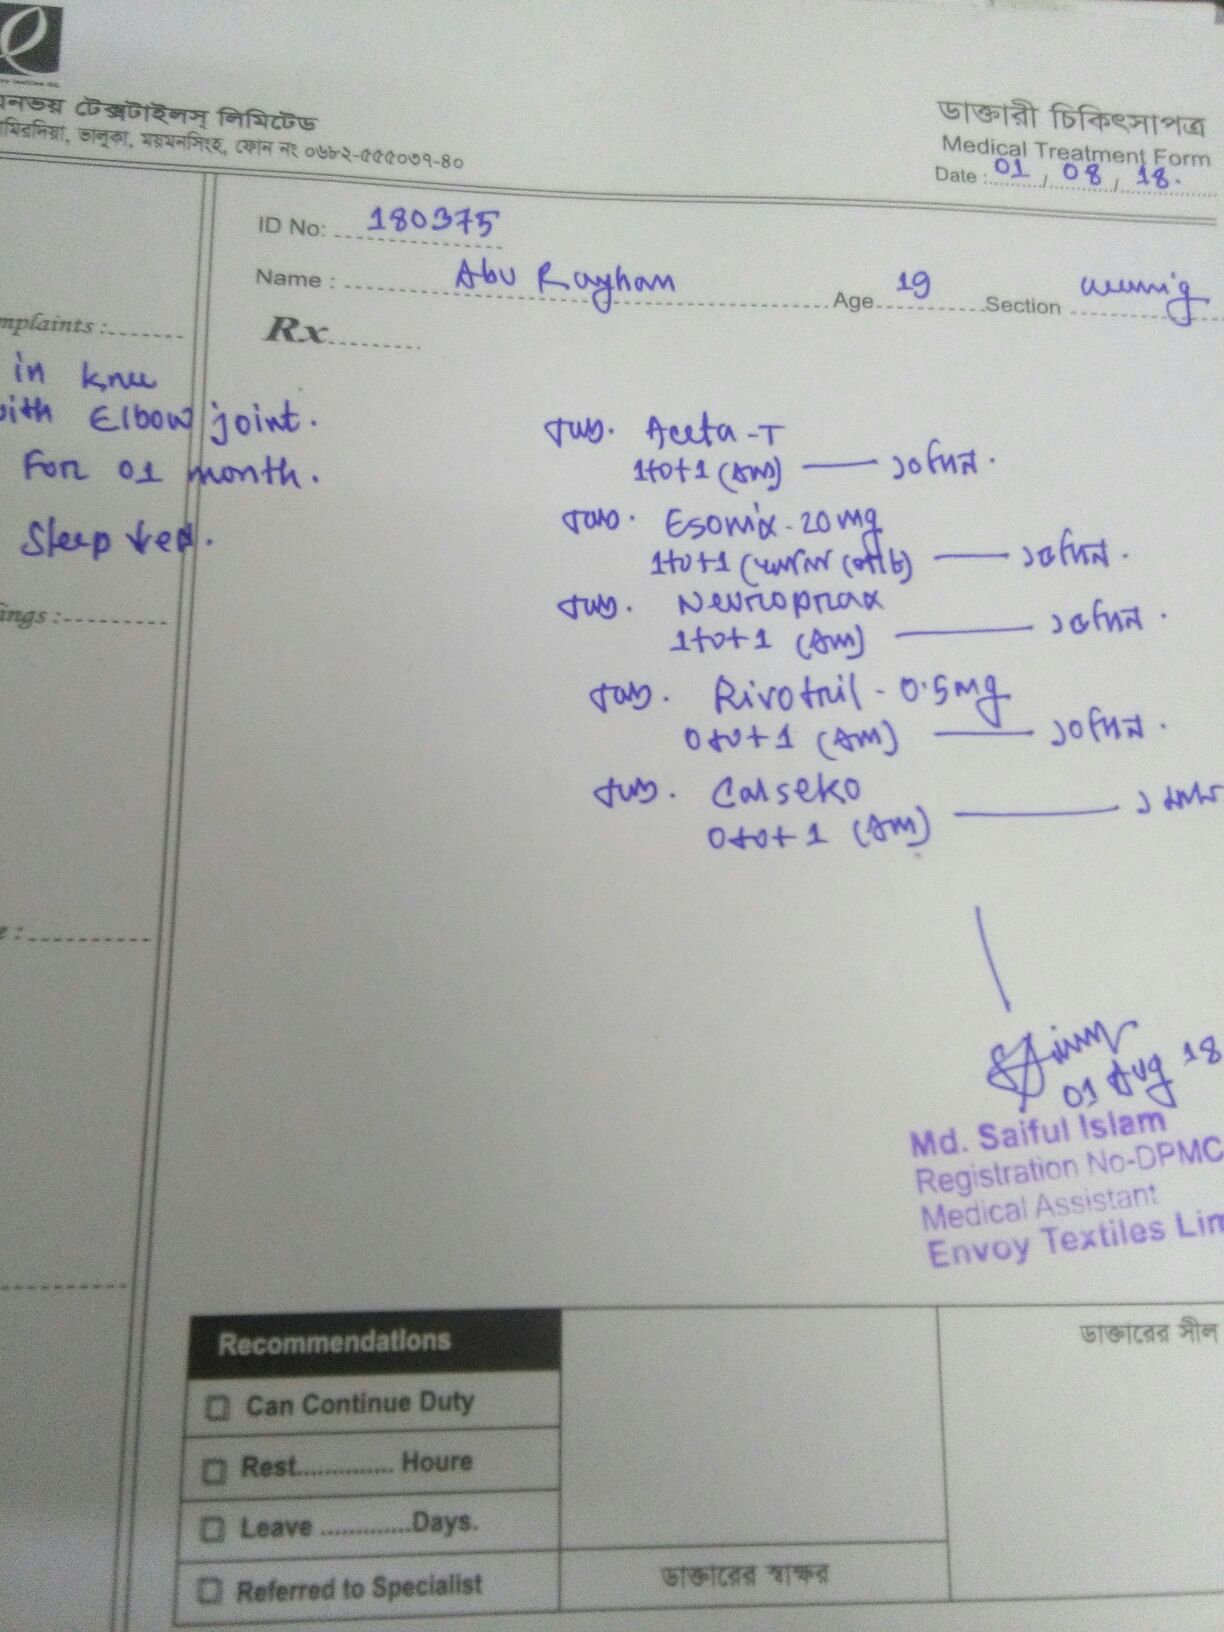 টেক্সটাইলস্ লিমিটেড
ভালুকা, ময়মনসিংহ, ফোন নং ০৬৮২-৫৫৫০৩৭-৪০
ডাক্তারী চিকিৎসাপত্র
Medical Treatment Form
Date : 01 / 08 / 18.
ID No: 180375
Name : Abu Rayhan Age 19 Section
Rx
in knee
with Elbow joint.
For 01 month.
Sleep ↓ed.
Tab. Aceta-T
1+0+1 (AM) — ১০ দিন.
Tab. Esomix-20mg
1+0+1 — ১৫ দিন.
Tab. Neuroprax
1+0+1 (AM) — ১৫ দিন.
Tab. Rivotril-0.5mg
0+0+1 (AM) — ১০ দিন.
Tab. Calseko
0+0+1 (AM) — ১ মাস
01 Aug 18
Md. Saiful Islam
Registration No-DPMC
Medical Assistant
Envoy Textiles Lim
Recommendations
Can Continue Duty
Rest.............. Houre
Leave ..............Days.
Referred to Specialist
ডাক্তারের স্বাক্ষর
ডাক্তারের সীল